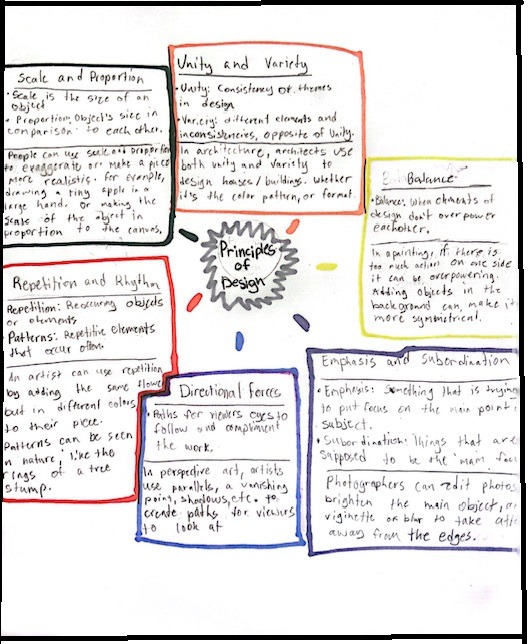 Scale and Proportion
• Scale is the size of an
object
• Proportion, Object's size in
comparison to each other.
People can use scale and proportion
to exaggerate or make a piece
more realistic. for example,
drawing a tiny apple in a
large hand. or making the
scale of the object in
proportion to the canvas.
Unity and Variety
• Unity: Consistency of themes
in design
• Variety: different elements and
inconsistencies, opposite of Unity.
In architecture, architects use
both unity and variety to
design houses/buildings. Whether
it's the color, pattern, or format.
Balance
• Balance: When elements of
design don't over power
eachother.
In a painting, if there is
too much action on one side
it can be overpowering.
Adding objects in the
background can make it
more symmetrical.
Principles
of
Design
Repetition and Rhythm
Repetition: Reoccuring objects
or elements
Patterns: Repetitive elements
that occur often.
An artist can use repetition
by adding the same flower
but in different colors
to their piece.
Patterns can be seen
in nature, like the
rings of a tree
stump.
Directional Forces
• Paths for viewers eyes to
follow and compliment
the work.
In perspective art, artists
use parallels, a vanishing
point, shadows, etc. to
create paths for viewers
to look at
Emphasis and Subordination
• Emphasis: Something that is trying
to put focus on the main point
subject.
• Subordination: Things that are
supposed to be the main
Photographers can edit photos
brighten the main object,
viginette or blur to take
away from the edges.